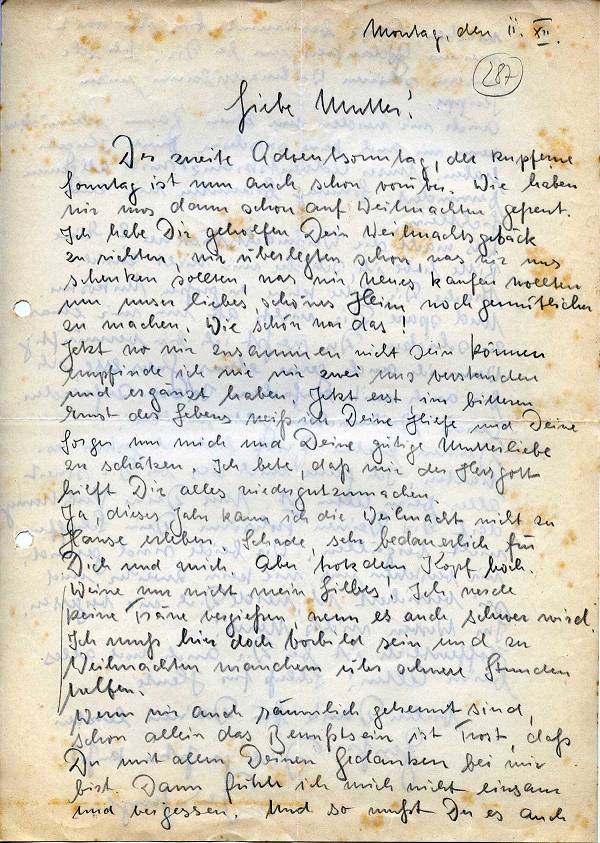 Montag, den 11. XII.
287
Liebe Mutter!
Der zweite Adventsonntag, der kupferne
Sonntag ist nun auch schon vorüber. Wie haben
wir uns dann schon auf Weihnachten gefreut.
Ich habe Dir geholfen Dein Weihnachtsgebäck
zu richten, wir überlegten schon, was wir uns
schenken sollten, was wir neues kaufen wollten
um unser liebes, schönes Heim noch gemütlicher
zu machen. Wie schön war das!
Jetzt wo wir zusammen nicht sein können
empfinde ich wie wir zwei uns verstanden
und ergänzt haben. Jetzt erst im bitteren
Ernst des Lebens weiß ich Deine Liebe und Deine
Sorgen um mich und Deine gütige Mutterliebe
zu schätzen. Ich bete, daß mir der Herrgott
hilft Dir alles wiedergutzumachen.
Ja, dieses Jahr kann ich die Weihnacht nicht zu
Hause erleben. Schade, sehr bedauerlich für
Dich und mich. Aber trotzdem Kopf hoch.
Weine nur nicht mein Liebes, Ich werde
keine Träne vergießen, wenn es auch schwer wird.
Ich muß hier doch Vorbild sein und zu
Weihnachten manchem über schwere Stunden
helfen.
Wenn wir auch räumlich getrennt sind,
schon allein das Bewußtsein ist Trost, daß
Du mit allen Deinen Gedanken bei mir
bist. Dann fühle ich mich nicht einsam
und vergessen. Und so mußt Du es auch